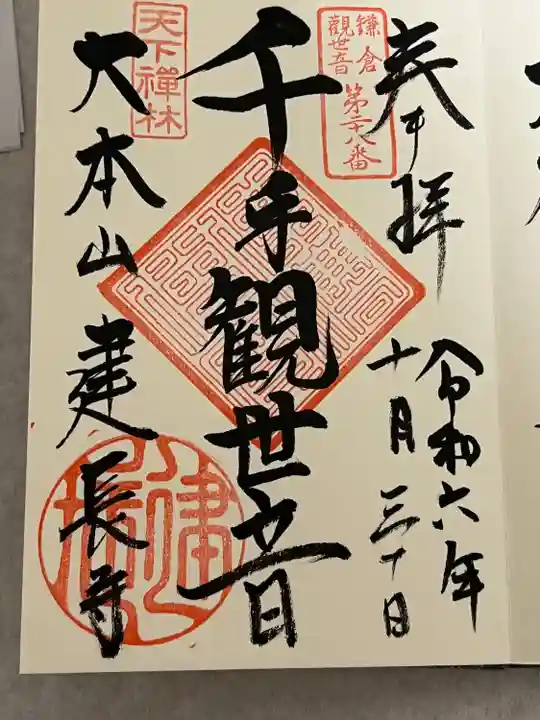 奉拝
令和六年
十月三十日
鎌倉
觀世音
第二十八番
千手観世音
天下禪林
大本山建長寺